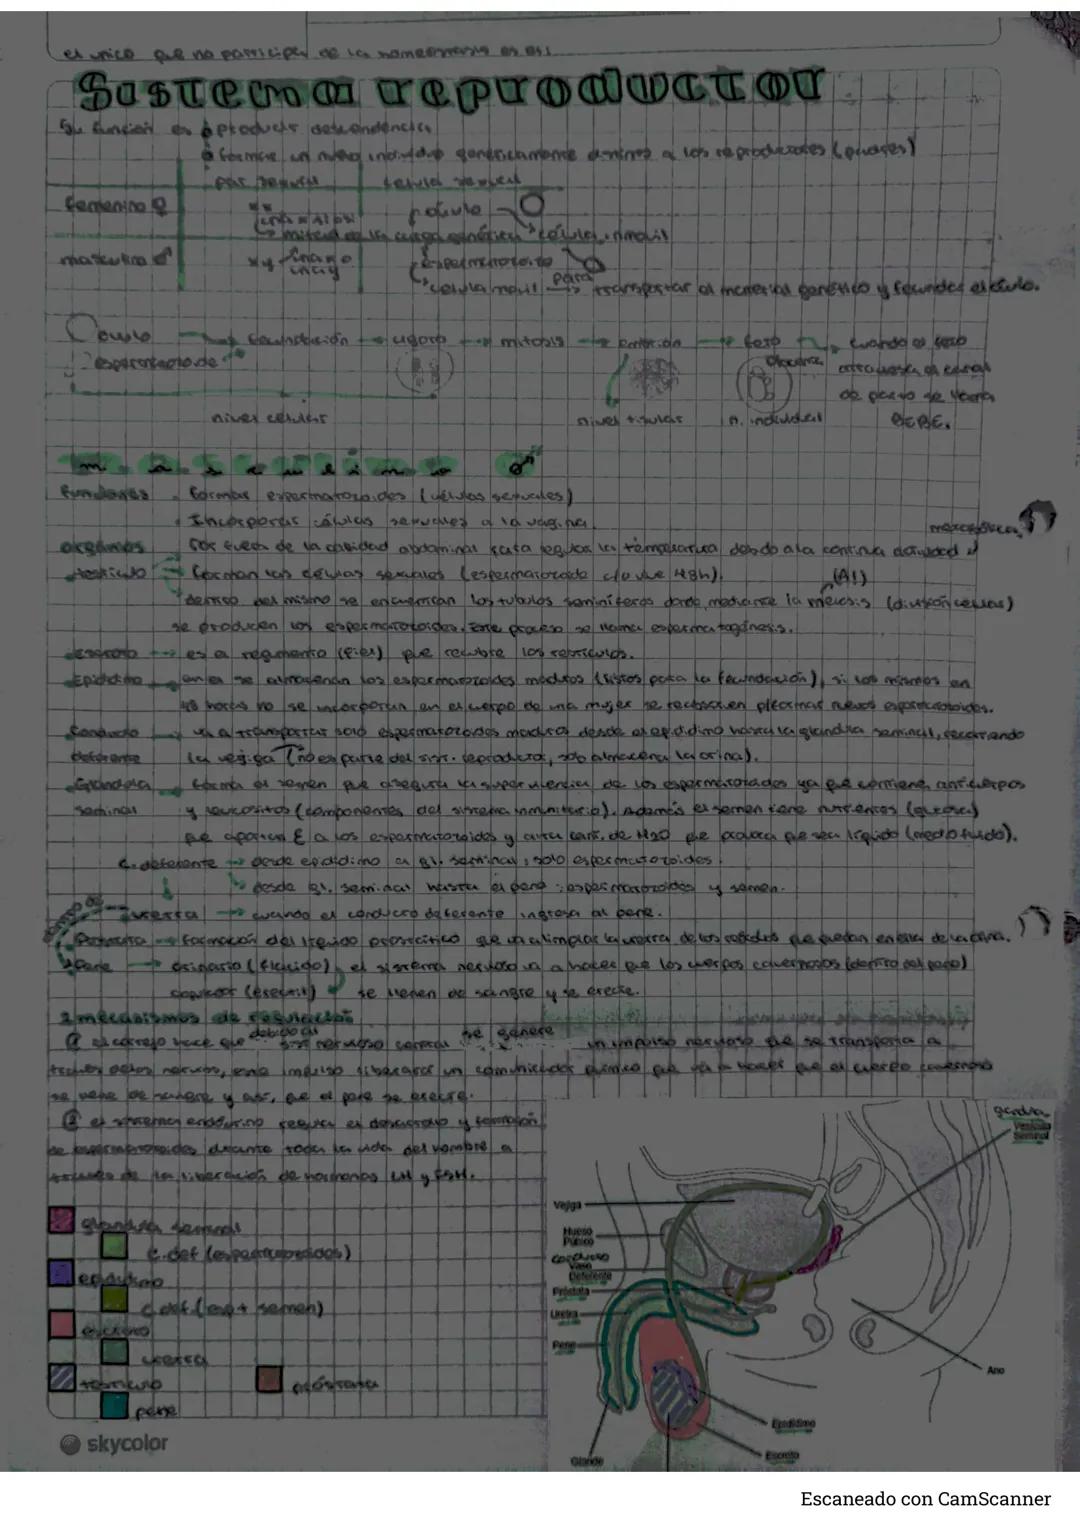 el unico que no participa de la homeostasis es es!
Sistema reproductor
Su función es producir descendencia
formar un nuevo individuo genéticamente a los reproductores (padres)
par sexual célula sexual
femenino ♀ xx óvulo
mitad de la carga genética célula inmóvil
masculino ♂ xy espermatozoide
célula movil para transportar el material genético y fecundar el óvulo.
Óvulo fecundación cigoto mitosis embrión feto cuando el feto
espermatozoide placenta atraviesa el canal
de parto se llama
nivel celular nivel tisular n. individual BEBE.
masculino ♂
funciones . formar espermatozoides (células sexuales)
. Incorporar células sexuales a la vagina.
organos son fuera de la cavidad abdominal para regular la temperatura debido a la continua actividad
testiculo forman las células sexuales (espermatozoide c/u vive 48h). (A!)
dentro del mismo se encuentran los tubulos seminiferos donde mediante la meiosis (división celular)
se producen los espermatozoides. Este proceso se llama espermatogénesis.
escroto es el tegumento (piel) que recubre los testículos.
Epididimo en él se almacenan los espermatozoides maduros (listos para la fecundación), si los mismos en
48 horas no se incorporan en el cuerpo de una mujer se producen nuevos espermatozoides.
Conducto va a transportar solo espermatozoides maduros desde el epididimo hasta la glandula seminal, recorriendo
deferente la vejiga (no es parte del sist. reproductor, solo almacena la orina).
Glandula forma el semen que asegura la supervivencia de los espermatozoides ya que contiene anticuerpos
seminal y leucocitos (componentes del sistema inmunitario). Además el semen tiene nutrientes (glucosa)
que aportan E a los espermatozoides y alta cant. de H2O que provoca que sea líquido (medio fluido).
C. deferente desde epididimo a gl. seminal, solo espermatozoides.
desde gl. seminal hasta el pene: espermatozoides y semen.
uretra cuando el conducto deferente ingresa al pene.
Prostata formación del líquido prostático que va a limpiar la uretra de los residuos que puedan en ella de la orina.
Pene urinario (flácido), el sistema nervioso va a hacer que los cuerpos cavernosos (dentro del pene)
copulador (erectil) se llenen de sangre y se erecte.
2 mecanismos de regulación
① el hace que debido al sist nervioso central se genere un impulso nervioso que se transporta a
través de los nervios, este impulso liberara un comunicador químico que va a hacer que el cuerpo cavernoso
se llene de sangre y así, que el pene se erecte.
② el sistema endócrino regula el desarrollo y formación
de espermatozoides durante toda la vida del hombre a
través de la liberación de hormonas LH y FSH.
glandula seminal
c.def (espermatozoides)
epididimo
c.def (esp + semen)
escroto
uretra
testiculo próstata
pene
glandula
Vesícula
Seminal
Vejiga
Hueso
Púbico
conducto
Vaso
Deferente
Próstata
Uretra
Pene
Ano
Epidídimo
Escroto
Glande
skycolor
Escaneado con CamScanner